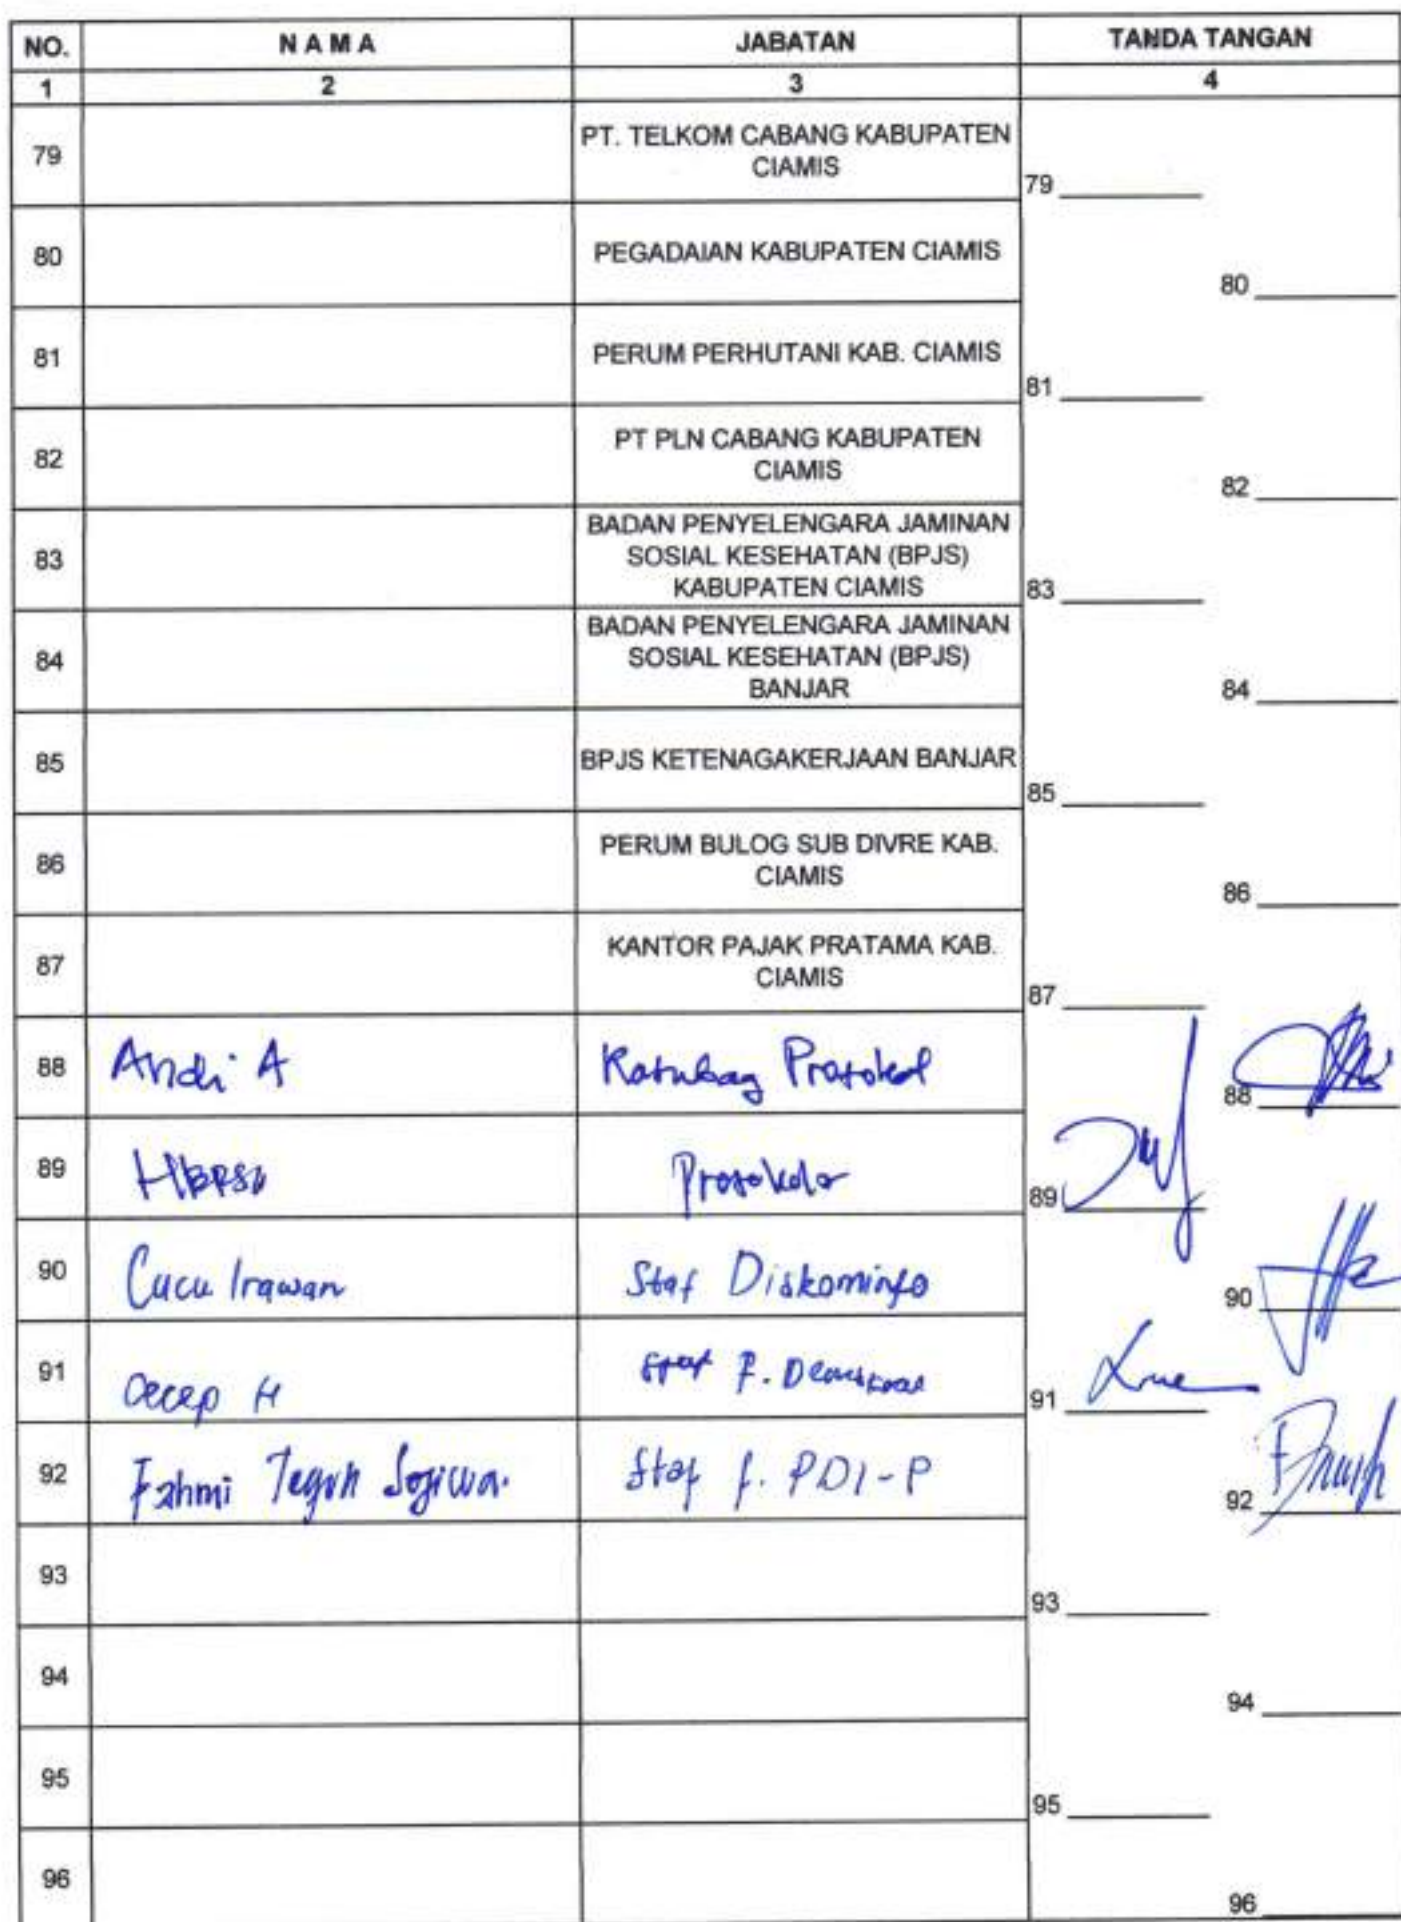 NO. NAMA JABATAN TANDA TANGAN
1 2 3 4
79 PT. TELKOM CABANG KABUPATEN
CIAMIS
79
80 PEGADAIAN KABUPATEN CIAMIS
80
81 PERUM PERHUTANI KAB. CIAMIS
81
82 PT PLN CABANG KABUPATEN
CIAMIS
82
83 BADAN PENYELENGARA JAMINAN
SOSIAL KESEHATAN (BPJS)
KABUPATEN CIAMIS
83
84 BADAN PENYELENGARA JAMINAN
SOSIAL KESEHATAN (BPJS)
BANJAR
84
85 BPJS KETENAGAKERJAAN BANJAR
85
86 PERUM BULOG SUB DIVRE KAB.
CIAMIS
86
87 KANTOR PAJAK PRATAMA KAB.
CIAMIS
87
88 Andi A Kasubag Protokol
88
89
89
90 Cucu Irawan Staf Diskominfo
90
91 Cecep H
91
92 Fahmi Teguh Staf f. PDI-P
92
93
93
94
94
95
95
96
96